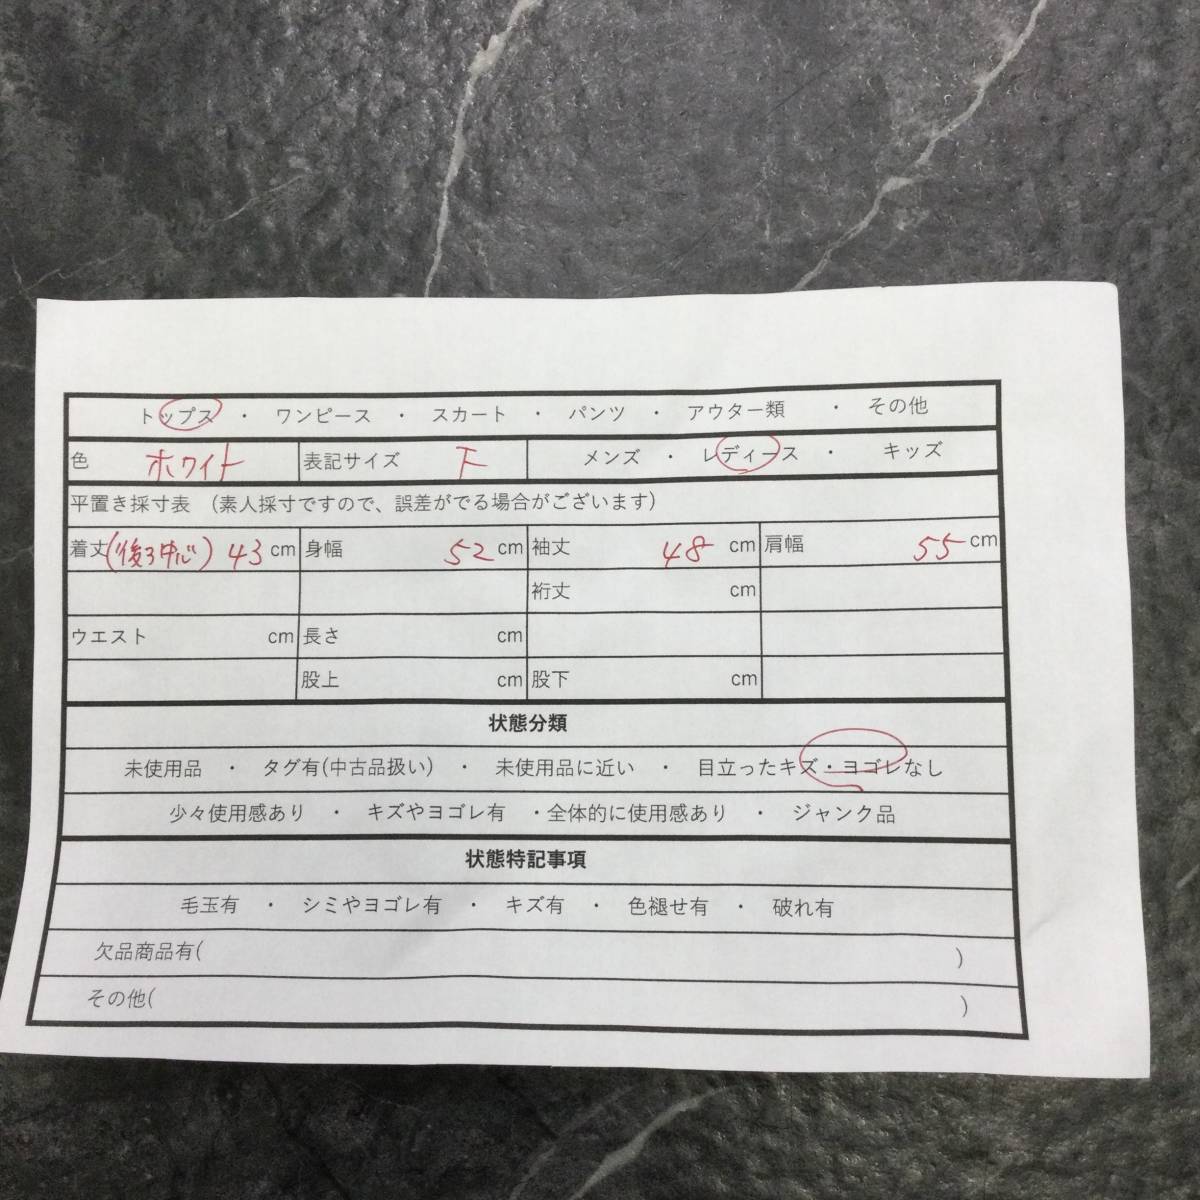 トップス ・ ワンピース ・ スカート ・ パンツ ・ アウター類 ・ その他
色 ホワイト 表記サイズ F メンズ ・ レディース ・ キッズ
平置き採寸表 (素人採寸ですので、誤差がでる場合がございます)
着丈(後ろ中心) 43 cm 身幅 52 cm 袖丈 48 cm 肩幅 55 cm
裄丈 cm
ウエスト cm 長さ cm
股上 cm 股下 cm
状態分類
未使用品 ・ タグ有(中古品扱い) ・ 未使用品に近い ・ 目立ったキズ・ヨゴレなし
少々使用感あり ・ キズやヨゴレ有 ・全体的に使用感あり ・ ジャンク品
状態特記事項
毛玉有 ・ シミやヨゴレ有 ・ キズ有 ・ 色褪せ有 ・ 破れ有
欠品商品有( )
その他( )